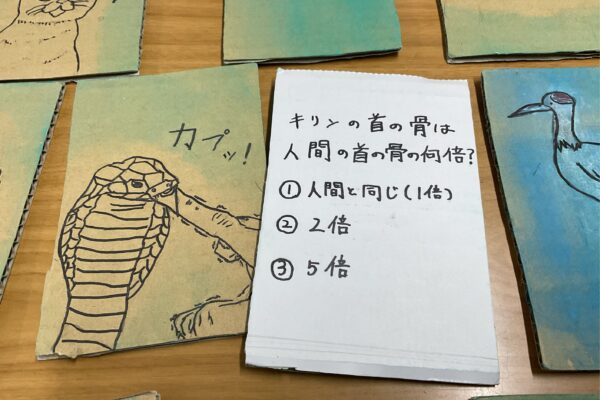 カプッ!
キリンの首の骨は
人間の首の骨の何倍?
① 人間と同じ(1倍)
② 2倍
③ 5倍